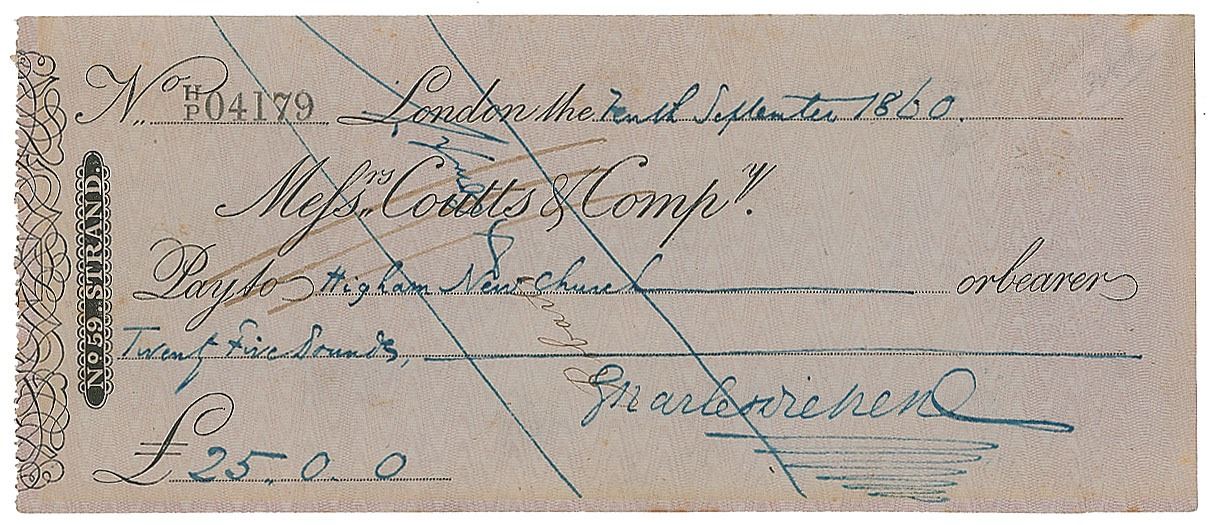 No. H/P 04179 London the Tenth September 1860.
Messrs. Coutts & Compy.
No 59. STRAND.
Pay to Higham New Church or bearer
Twenty Five Pounds
Charles Dickens
£25.0.0